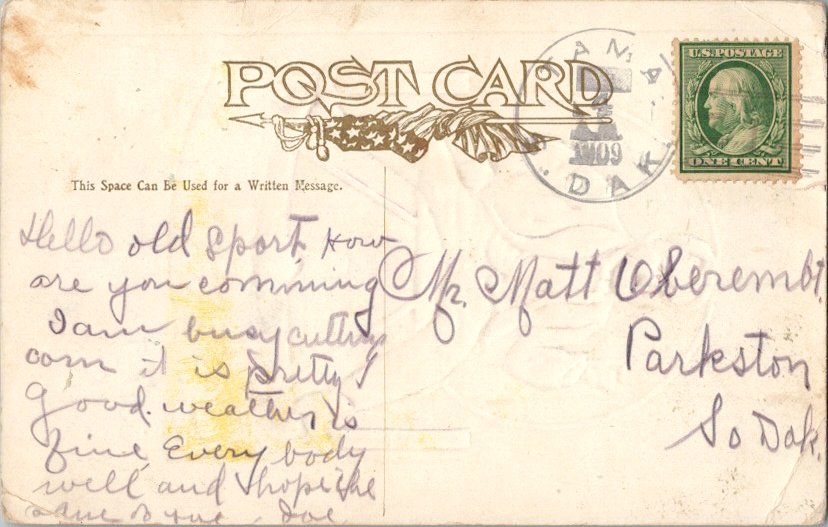 POST CARD
U.S. POSTAGE
ONE CENT
ANA
AM 09
DAK.
This Space Can Be Used for a Written Message.
Hello old sport How
are you comming
I am busy cutting
corn it is pretty
good. weather is
fine Every body
well and I hope the
same to you. Joe
Mr. Matt Oberembt.
Parkston
So Dak.